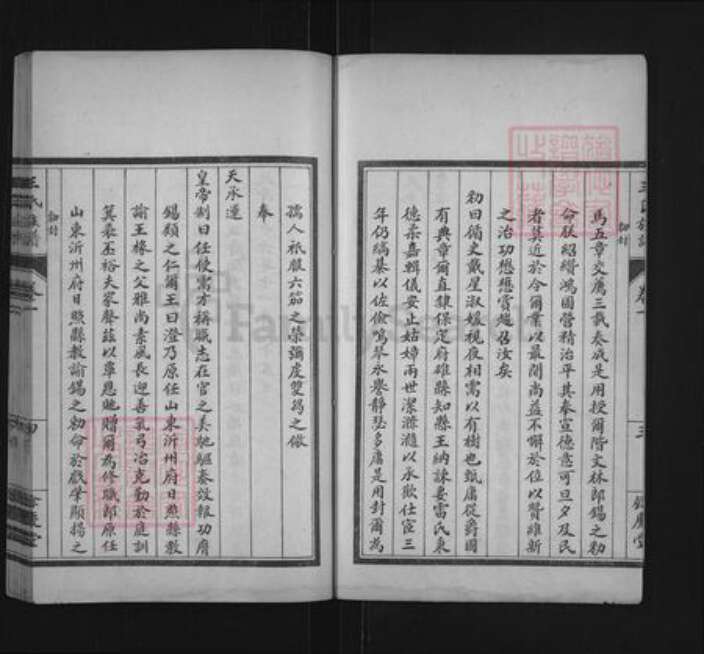 馬五章交薦三載奏成是用授爾階文林郎錫之勅
命朕紹纘鴻圖營精治平其奉宣德意可旦夕及民
者莫近於令爾業以最聞尚益不懈於位以贊維新
之治功懋懋賞趨召汝矣
勅曰循吏戴星淑媛視夜相需以有樹也甄庸從爵國
有典章爾直隸保定府雄縣知縣王納諫妻雷氏秉
德柔嘉輯儀安止姑嫜兩世潔滫瀡以承歡仕宦三
年仍縞綦以佐儉鳴琴永譽靜瑟多庸是用封爾為
孺人祇嚴六笳之榮彌虔雙舄之儆
奉
天承運
皇帝制曰任使需才稱職志在官之美馳驅奏效報功膺
錫類之仁爾王曰澄乃原任山東沂州府日照縣教
諭王椽之父雅尚素風長迎善氣弓冶克勤於庭訓
箕裘丕裕夫家聲茲以覃恩貤贈爾為修職郎原任
山東沂州府日照縣教諭錫之勅命於戲肇顯揚之
王氏族譜
勅封
卷一
三
王氏族譜
勅封
卷一
四